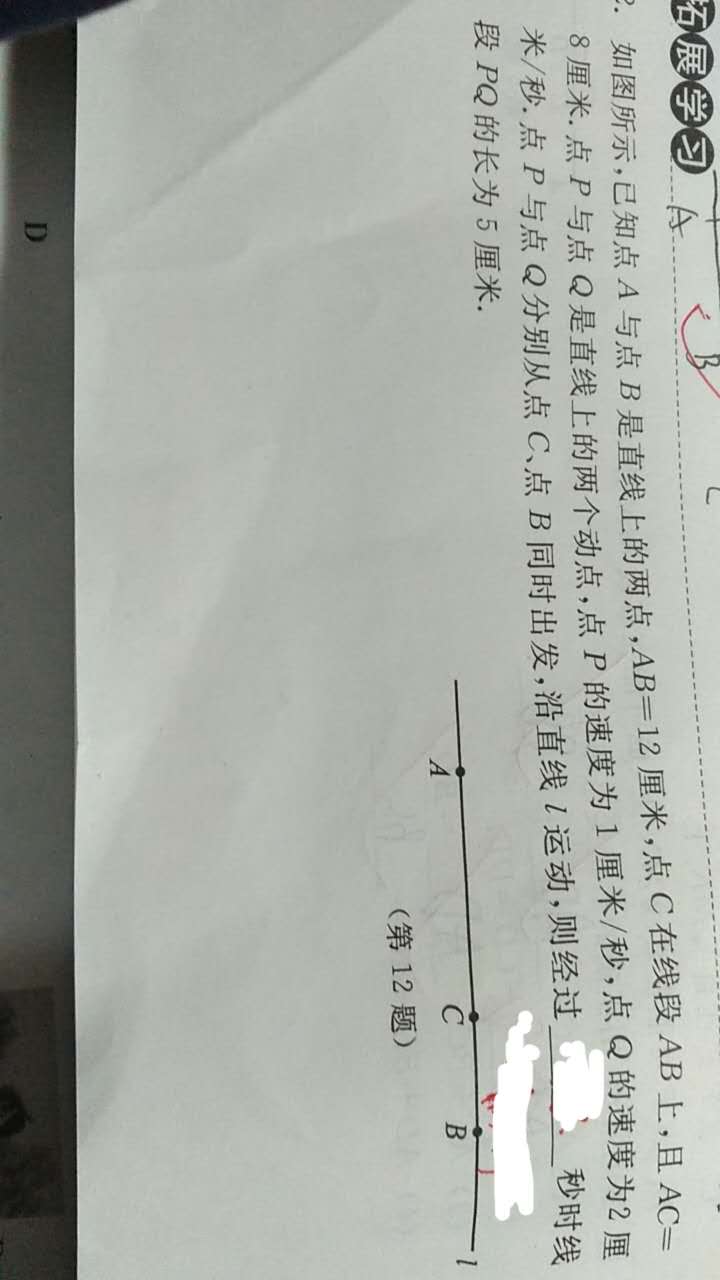 拓展学习
A
B
C
2. 如图所示,已知点 A 与点 B 是直线上的两点,AB=12 厘米,点 C 在线段 AB 上,且 AC=
8 厘米. 点 P 与点 Q 是直线上的两个动点,点 P 的速度为 1 厘米/秒,点 Q 的速度为2 厘
米/秒. 点 P 与点 Q 分别从点 C、点 B 同时出发,沿直线 l 运动,则经过______秒时线
段 PQ 的长为 5 厘米.
A C B l
(第 12 题)
D